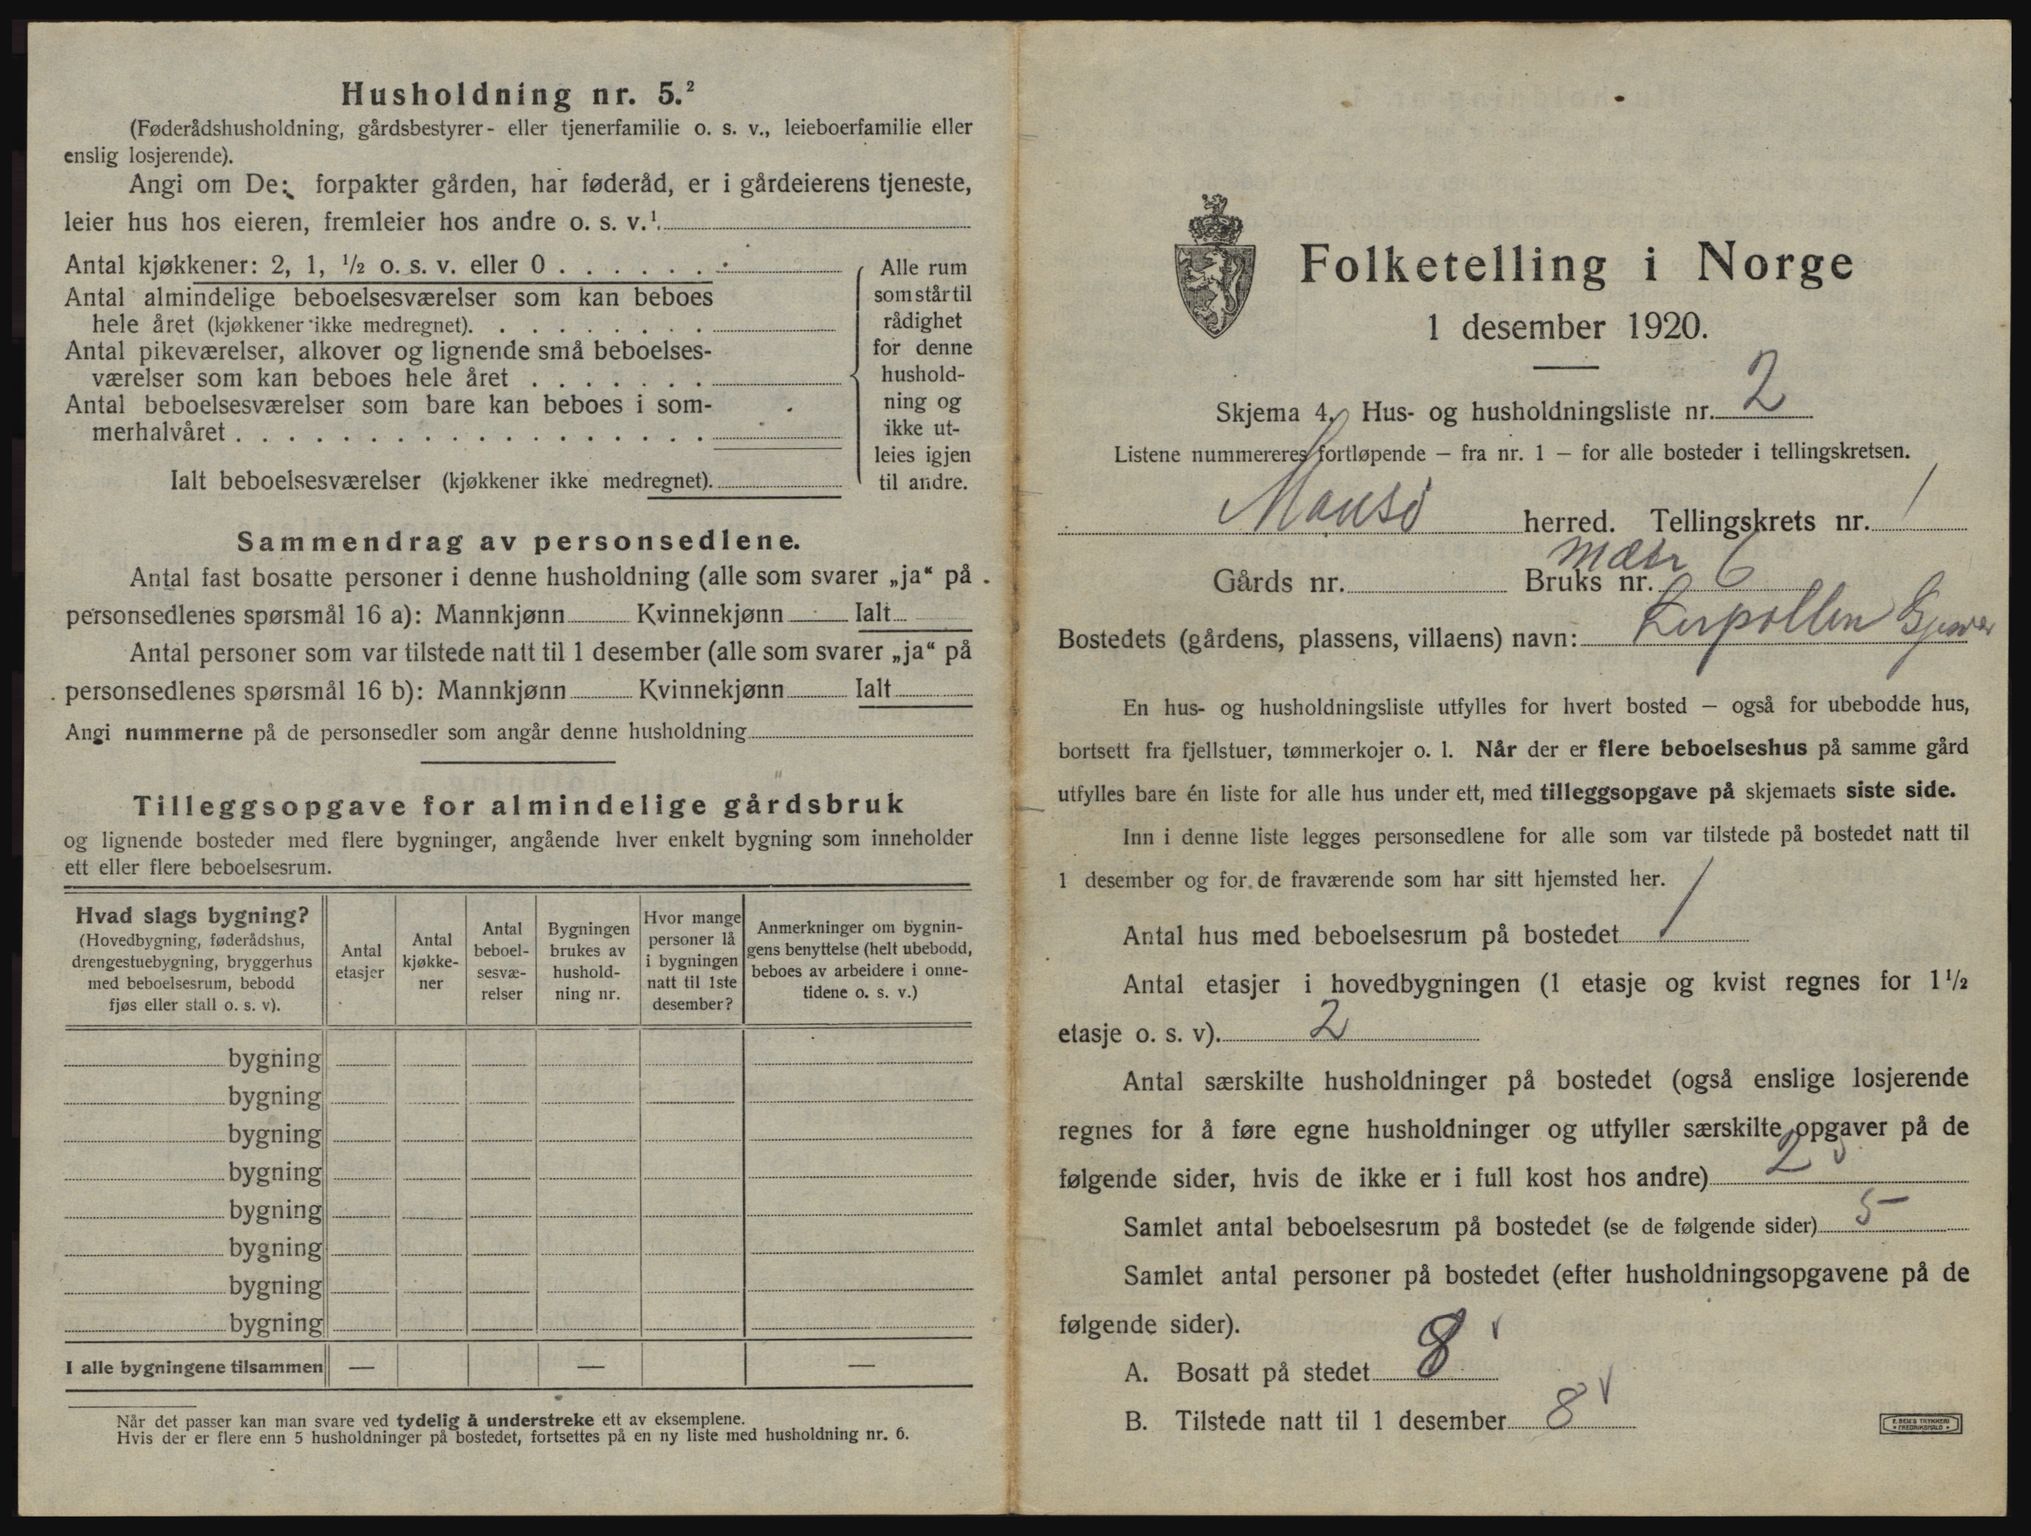 Husholdning nr. 5.²
(Føderådshusholdning, gårdsbestyrer- eller tjenerfamilie o. s. v., leieboerfamilie eller
enslig losjerende).
Angi om De: forpakter gården, har føderåd, er i gårdeierens tjeneste,
leier hus hos eieren, fremleier hos andre o. s. v.¹
Antal kjøkkener: 2, 1, ½ o. s. v. eller 0
Antal almindelige beboelsesværelser som kan beboes
hele året (kjøkkener ikke medregnet).
Antal pikeværelser, alkover og lignende små beboelses-
værelser som kan beboes hele året
Antal beboelsesværelser som bare kan beboes i som-
merhalvåret
Ialt beboelsesværelser (kjøkkener ikke medregnet).
Alle rum
som står til
rådighet
for denne
hushold-
ning og
ikke ut-
leies igjen
til andre.
Sammendrag av personsedlene.
Antal fast bosatte personer i denne husholdning (alle som svarer „ja“ på
personsedlenes spørsmål 16 a): Mannkjønn Kvinnekjønn Ialt
Antal personer som var tilstede natt til 1 desember (alle som svarer „ja“ på
personsedlenes spørsmål 16 b): Mannkjønn Kvinnekjønn Ialt
Angi nummerne på de personsedler som angår denne husholdning
Tilleggsopgave for almindelige gårdsbruk
og lignende bosteder med flere bygninger, angående hver enkelt bygning som inneholder
ett eller flere beboelsesrum.
Hvad slags bygning?
(Hovedbygning, føderådshus,
drengestuebygning, bryggerhus
med beboelsesrum, bebodd
fjøs eller stall o. s. v).
Antal
etasjer
Antal
kjøkke-
ner
Antal
beboel-
sesvæ-
relser
Bygningen
brukes av
hushold-
ning nr.
Hvor mange
personer lå
i bygningen
natt til 1ste
desember?
Anmerkninger om bygnin-
gens benyttelse (helt ubebodd,
beboes av arbeidere i onne-
tidene o. s. v.)
bygning
bygning
bygning
bygning
bygning
bygning
bygning
bygning
I alle bygningene tilsammen — — —
Når det passer kan man svare ved tydelig å understreke ett av eksemplene.
Hvis der er flere enn 5 husholdninger på bostedet, fortsettes på en ny liste med husholdning nr. 6.
Folketelling i Norge
1 desember 1920.
Skjema 4. Hus- og husholdningsliste nr. 2
Listene nummereres fortløpende — fra nr. 1 — for alle bosteder i tellingskretsen.
Mausø herred. Tellingskrets nr. 1
Gårds nr. Bruks nr. 6
Bostedets (gårdens, plassens, villaens) navn: Lerpollen Gjesvær
En hus- og husholdningsliste utfylles for hvert bosted — også for ubebodde hus,
bortsett fra fjellstuer, tømmerkojer o. l. Når der er flere beboelseshus på samme gård
utfylles bare én liste for alle hus under ett, med tilleggsopgave på skjemaets siste side.
Inn i denne liste legges personsedlene for alle som var tilstede på bostedet natt til
1 desember og for de fraværende som har sitt hjemsted her.
Antal hus med beboelsesrum på bostedet 1
Antal etasjer i hovedbygningen (1 etasje og kvist regnes for 1½
etasje o. s. v). 2
Antal særskilte husholdninger på bostedet (også enslige losjerende
regnes for å føre egne husholdninger og utfyller særskilte opgaver på de
følgende sider, hvis de ikke er i full kost hos andre) 2
Samlet antal beboelsesrum på bostedet (se de følgende sider) 5
Samlet antal personer på bostedet (efter husholdningsopgavene på de
følgende sider).
A. Bosatt på stedet 8
B. Tilstede natt til 1 desember 8